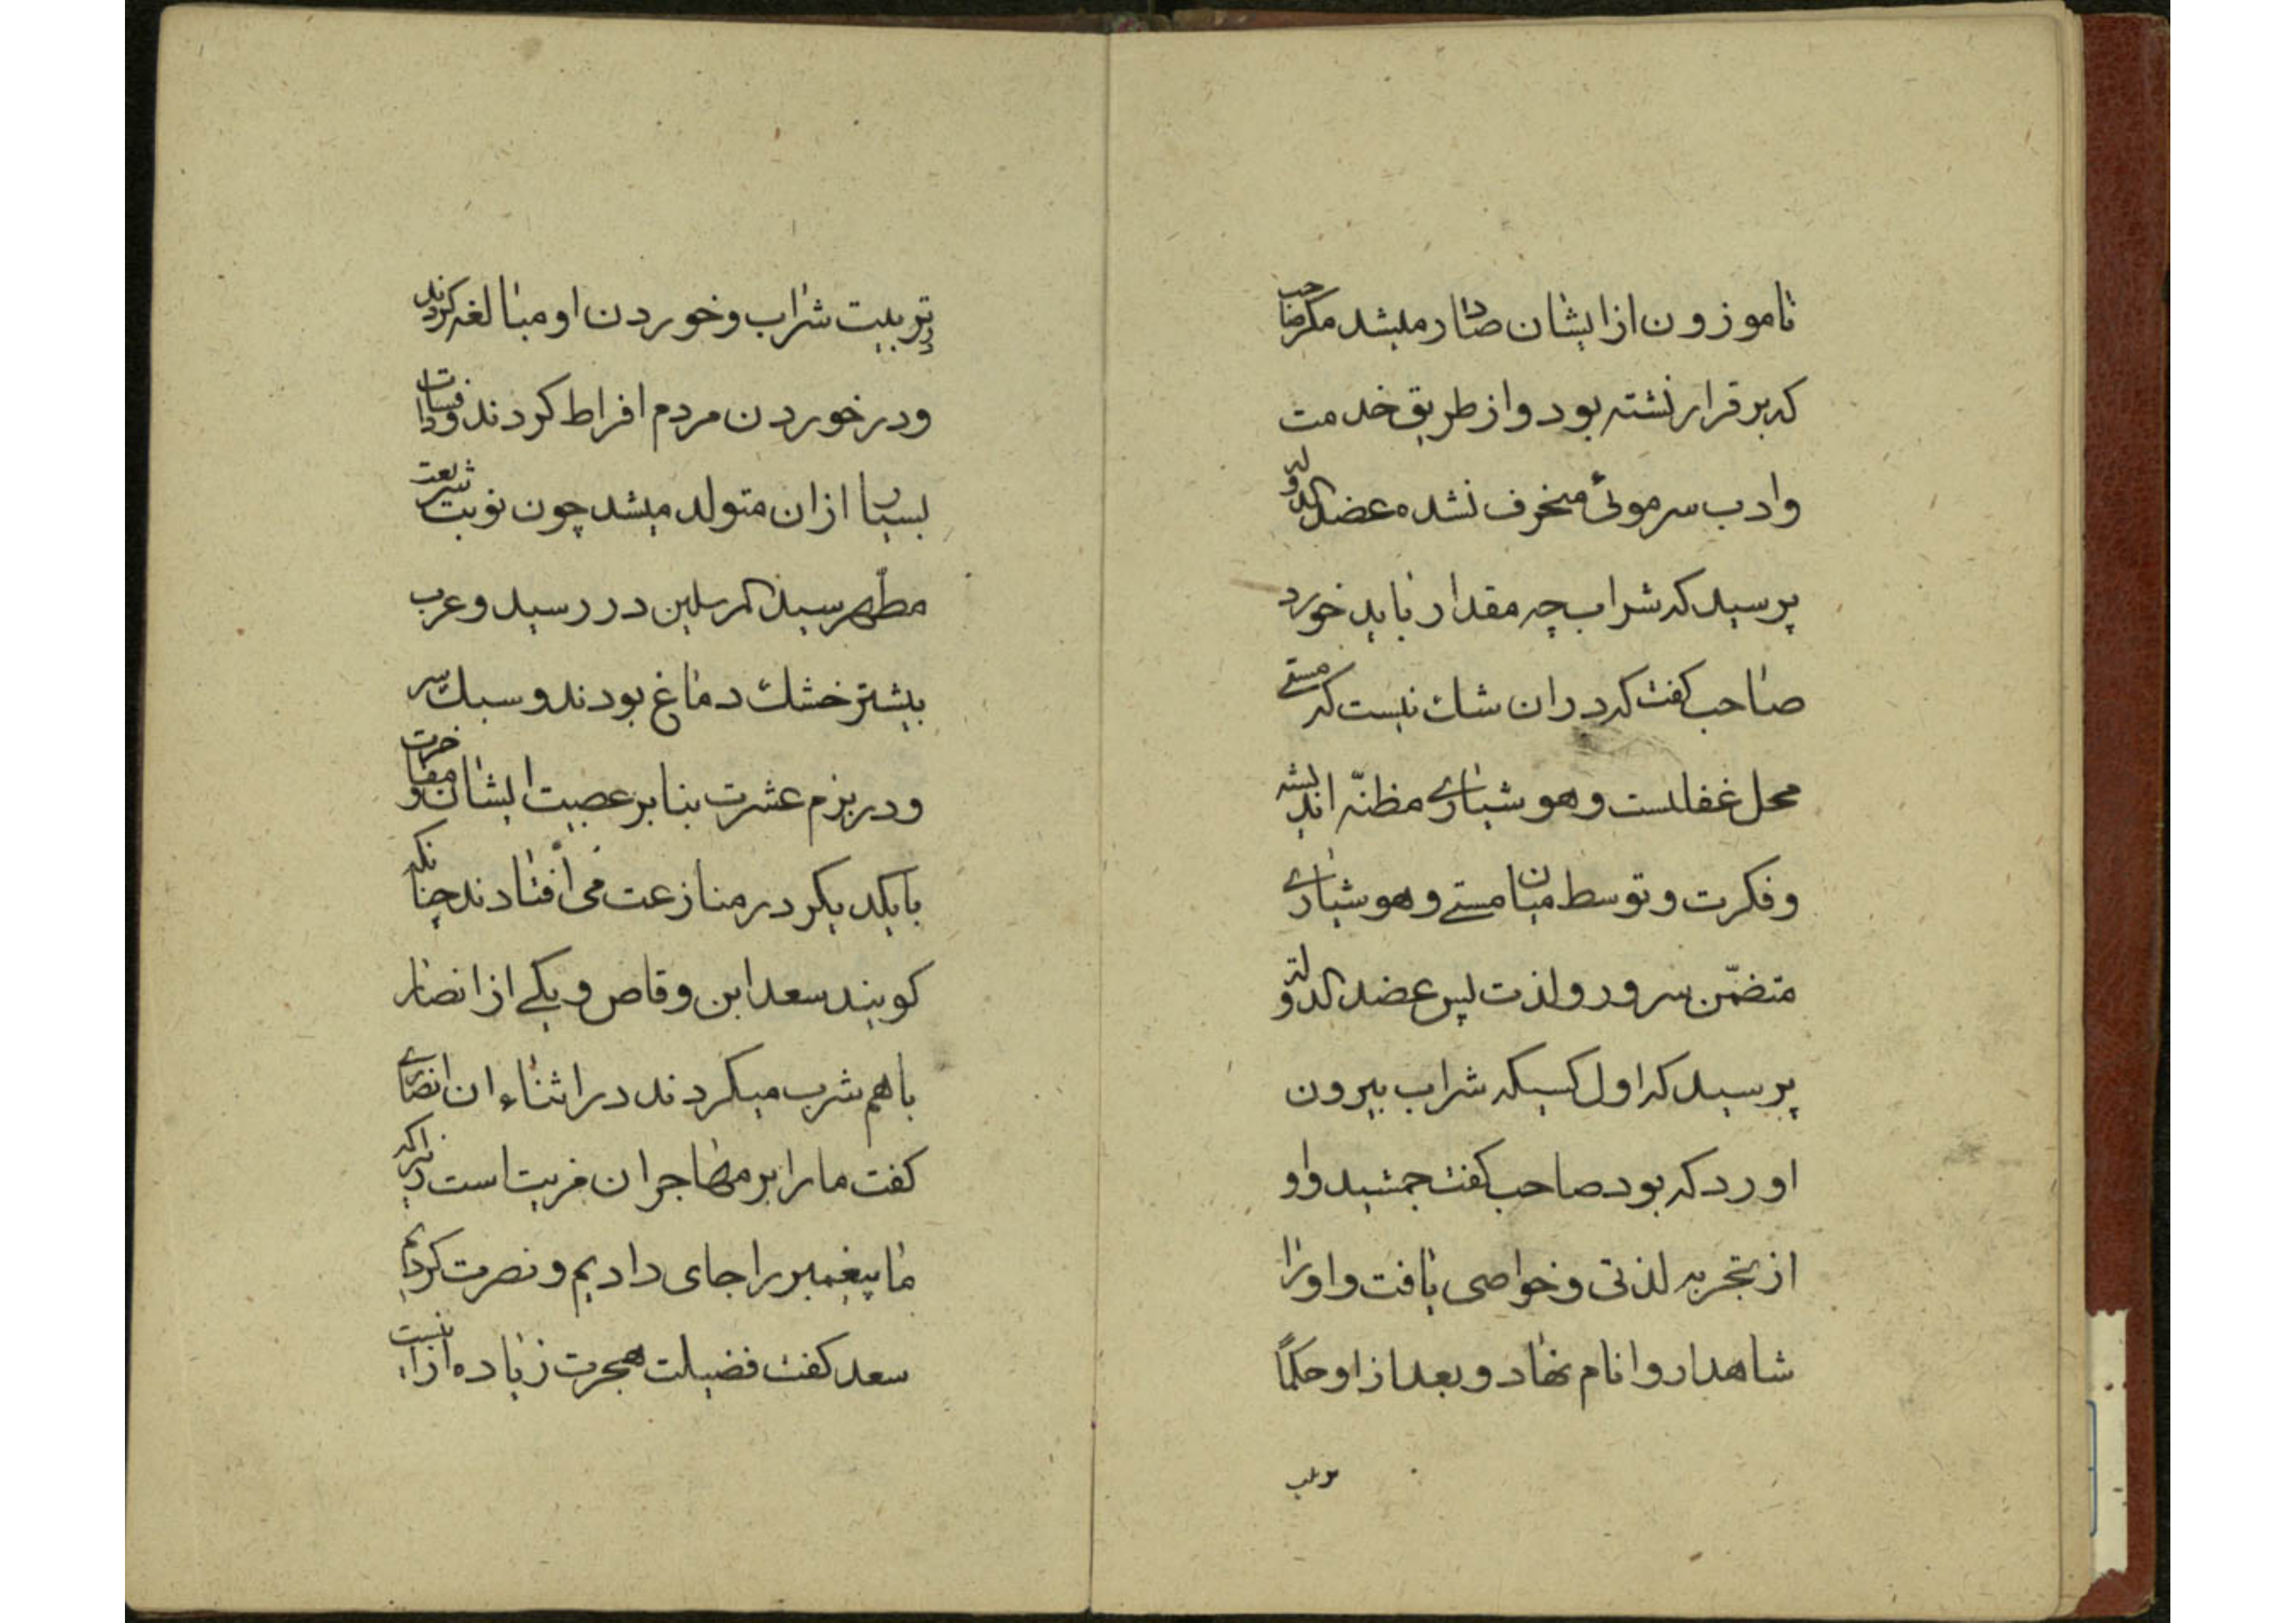 ناموزون از ایشان صادر میشد مکر صاحب
که بر قرار نشته بود و از طریق خدمت
و ادب سر موئی منحرف نشده عضد الدوله
پرسید که شراب چه مقدار باید خورد
صاحب کفت که در ان شک نیست که مستی
محل غفلتست و هوشیاری مظنّه اندیشه
و فکرت و توسط میان مستی و هوشیاری
متضمّن سرور و لذت پس عضد الدوله
پرسید که اول کسیکه شراب بیرون
اورد که بود صاحب کفت جمشید و او
از تجربه لذتی و خواصی یافت و او را
شاهدارو انام نهاد و بعد از او حکمًا
در تربیت شراب و خوردن او مبالغه کردند
و در خوردن مردم افراط کردند و فسادات
بسیار از ان متولد میشد چون نوبت شریعت
مطهر سید المرسلین در رسید و عرب
بیشتر خشك دماغ بودند و سبك سر
و در بزم عشرت بنا بر عصبیت ایشان و مفاخرت
با یکدیکر در منازعت می افتادند چنانکه
کویند سعد ابن وقاص و یکی از انصار
با هم شرب میکردند در اثناء ان انصاری
کفت ما را بر مهاجران مزیت است زیراکه
ما پیغمبر را جای دادیم و نصرت کردیم
سعد کفت فضیلت هجرت زیاده از انست